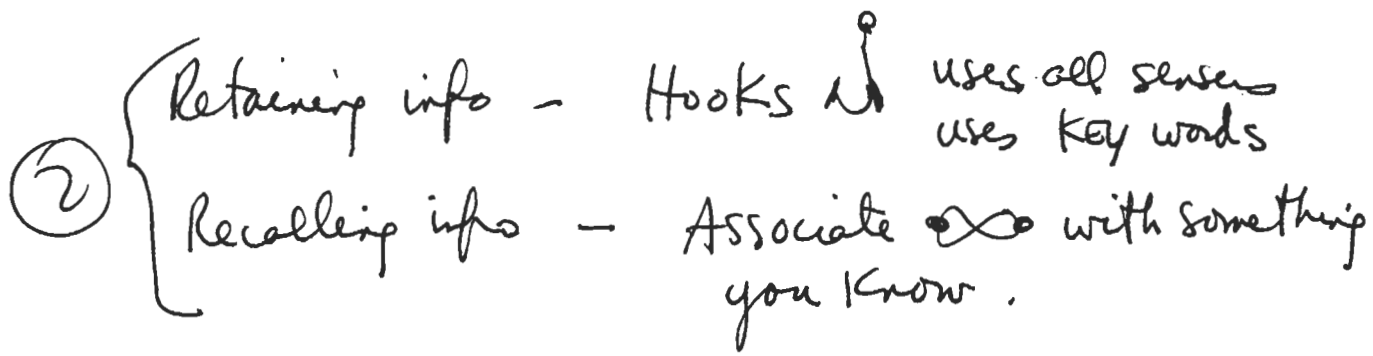 ②
Retaining info - Hooks uses all senses
uses Key words
Recalling info - Associate with something
you know.